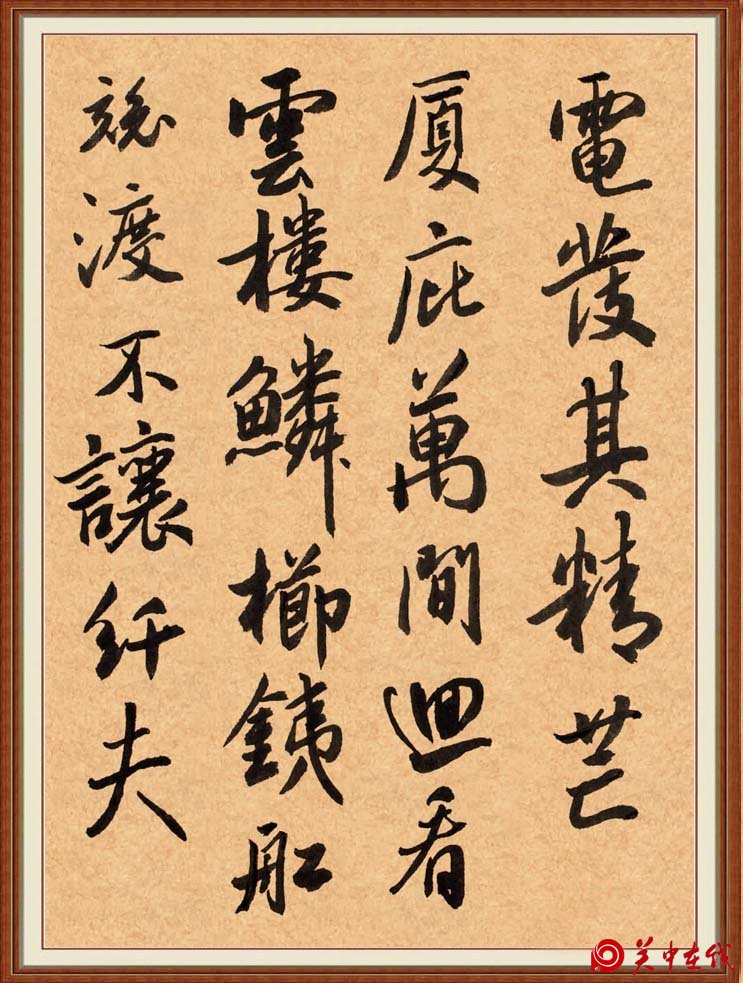 電發其精芒
厦庇萬間迴看
雲樓鱗櫛銕舡
競渡不讓纤夫
关中在线